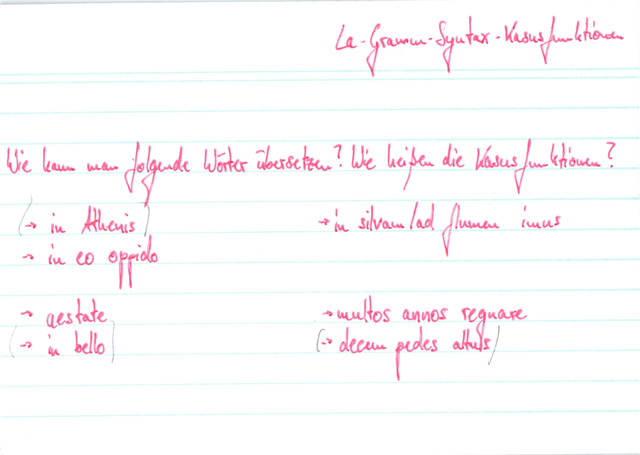 La-Gramm-Syntax-Kasusfunktionen
Wie kann man folgende Wörter übersetzen? Wie heißen die Kasusfunktionen?
(→ in Athenis)
→ in silvam/ad flumen imus
→ in eo oppido
→ aestate
→ multos annos regnare
(→ in bello)
(→ decem pedes altus)